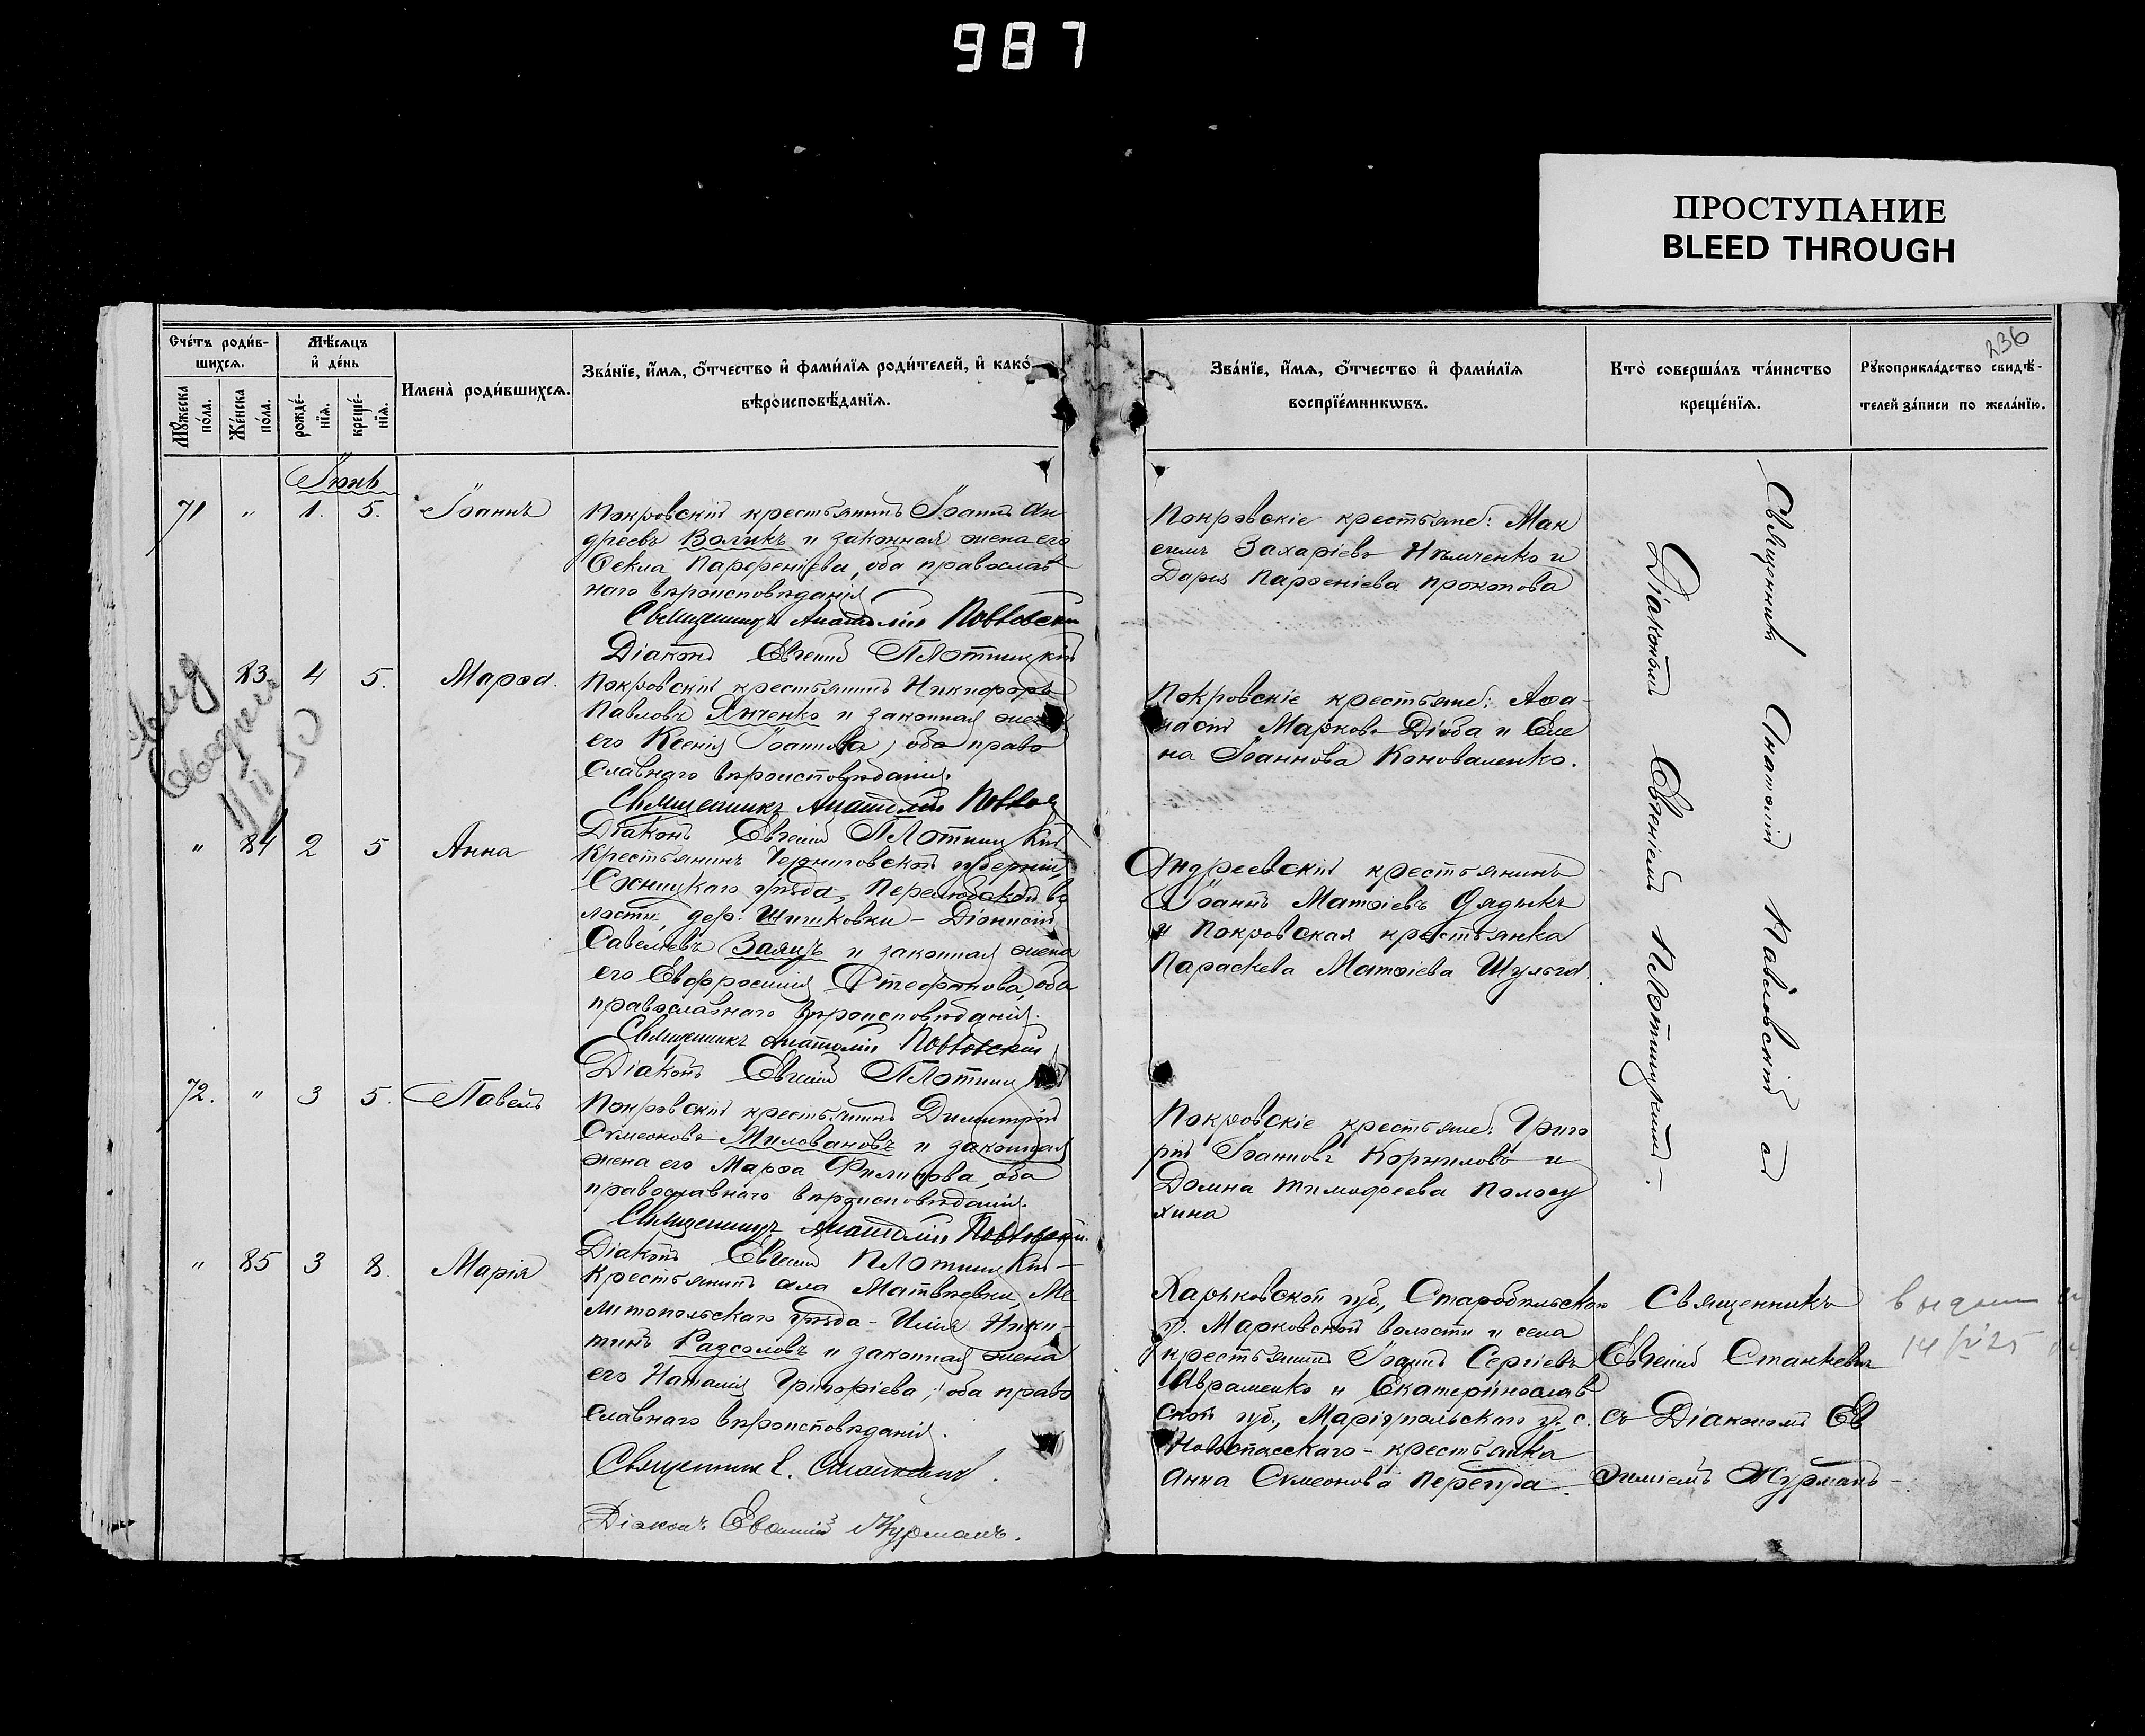 987
ПРОСТУПАНИЕ
BLEED THROUGH
236
Счéтъ роди́в-
шихсѧ.
Мꙋжеска по́ла.
Же́нска по́ла.
Мѣ́сѧцъ
и҆ де́нь
рожде́-
нїѧ.
креще́-
нїѧ.
Имена̀ роди́вшихсѧ.
Зва́нїе, и҆́мѧ, ѻ҆́тчество и҆ фами́лїѧ роди́телей, и҆ како́-
вѣроисповѣ́данїѧ.
Зва́нїе, и҆́мѧ, ѻ҆́тчество и҆ фами́лїѧ
воспрїе́мникѡвъ.
Кто̀ соверша́лъ та́инство
креще́нїѧ.
Рꙋкоприкла́дство свидѣ́-
телей за́писи по жела́нїю.
Іюнь
71 " 1. 5. Іоаннъ
Покровскій крестьянинъ Іоаннъ Ан
дреевъ Воликъ и законная жена его
Ѳекла Парѳеніева, оба православ
наго вѣроисповѣданія
Священникъ Анатолій Павловскій
Діаконъ Евгеній Плотницкій
Покровскіе крестьяне: Мак
симъ Захаріевъ Нѣмченко и
Дарія Парѳеніева Прокопова
83 4 5. Марѳа.
Покровскій крестьянинъ Никифоръ
Павловъ Янченко и законная жена
его Ксенія Іоаннова, оба право
славнаго вѣроисповѣданія.
Священникъ Анатолій
Діаконъ Евгеній Плотницкій
Покровскіе крестьяне: Аѳа-
насій Марковъ Дзюба и Еле
на Іоаннова Коноваленко.
" 84 2 5 Анна
Крестьянинъ Черниговской губерніи,
Сосницкаго уѣзда, Перелюбской во
лости, дер. Шишковки - Діонисій
Савеліевъ Заяцъ и законная жена
его Евфросинія Стефанова, оба
православнаго вѣроисповѣданія.
Священникъ Анатолій Павловскій
Діаконъ Евгеній Плотницкій
Андреевскій крестьянинъ
Іоаннъ Матѳіевъ Дядыкъ
и Покровская крестьянка
Параскева Матѳіева Шульга.
72. " 3 5. Павелъ
Покровскій крестьянинъ Димитрій
Сѵмеоновъ Миловановъ и законная
жена его Марѳа Филипова, оба
православнаго вѣроисповѣданія.
Священникъ Анатолій Павловскій.
Діаконъ Евгеній Плотницкій
Покровскіе крестьяне: Григо
рій Іоанновъ Корниловъ и
Домна Тимофеева Полосу
хина
Священникъ Анатолій Павловскій съ
Діакономъ Евгеніемъ Плотницкимъ.
" 85 3 8. Марія
Крестьянинъ села Матвѣевки, Ме
литопольскаго уѣзда - Илія Ники-
тинъ Разсоловъ и законная жена
его Наталія Григоріева, оба право
славнаго вѣроисповѣданія.
Священникъ Е. Станкевичъ.
Діаконъ Евѳимій Журманъ.
Харьковской губ., Старобѣльскаго
у. Марковской волости и села
крестьянинъ Іоаннъ Сергіевъ
Авраменко и Екатеринослав
ской губ., Маріупольскаго у. с.
Новоспасскаго - крестьянка
Анна Сѵмеонова
Священникъ
Евгеній Станкевичъ
съ Діакономъ Ев
ѳиміемъ Журманъ